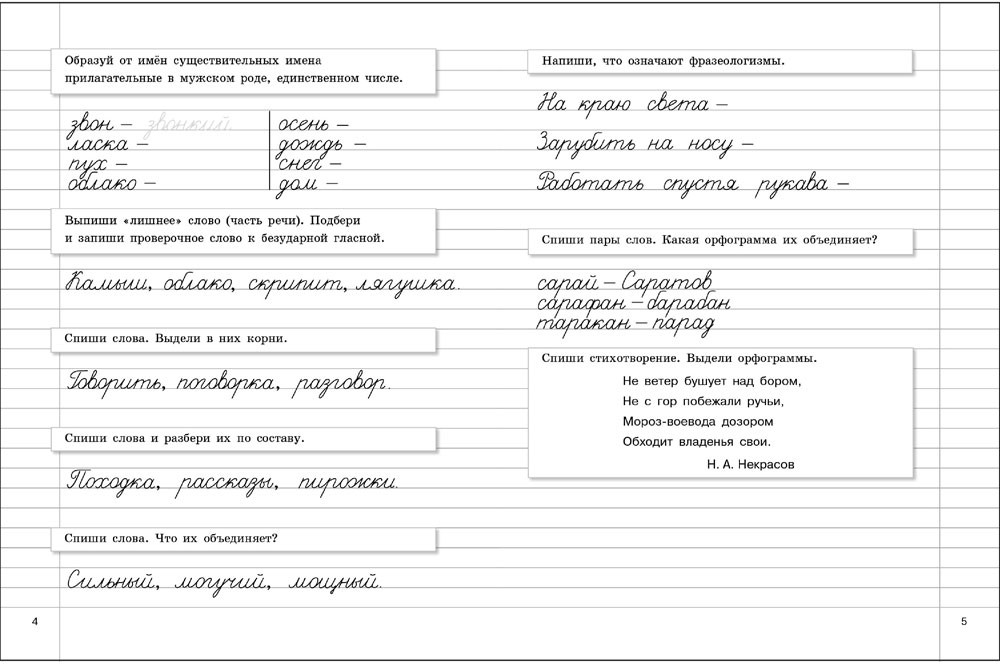 Образуй от имён существительных имена
прилагательные в мужском роде, единственном числе.
звон – звонкий.
ласка –
пух –
облако –
осень –
дождь –
снег –
дом –
Выпиши «лишнее» слово (часть речи). Подбери
и запиши проверочное слово к безударной гласной.
Камыш, облако, скрипит, лягушка.
Спиши слова. Выдели в них корни.
Говорить, поговорка, разговор.
Спиши слова и разбери их по составу.
Походка, рассказы, пирожки.
Спиши слова. Что их объединяет?
Сильный, могучий, мощный.
4
Напиши, что означают фразеологизмы.
На краю света –
Зарубить на носу –
Работать спустя рукава –
Спиши пары слов. Какая орфограмма их объединяет?
сарай – Саратов
сарафан – барабан
таракан – парад
Спиши стихотворение. Выдели орфограммы.
Не ветер бушует над бором,
Не с гор побежали ручьи,
Мороз-воевода дозором
Обходит владенья свои.
Н. А. Некрасов
5